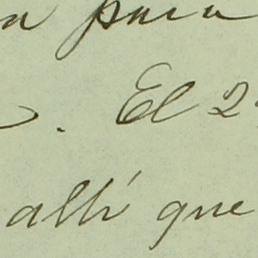 a para
. El 2
allí que